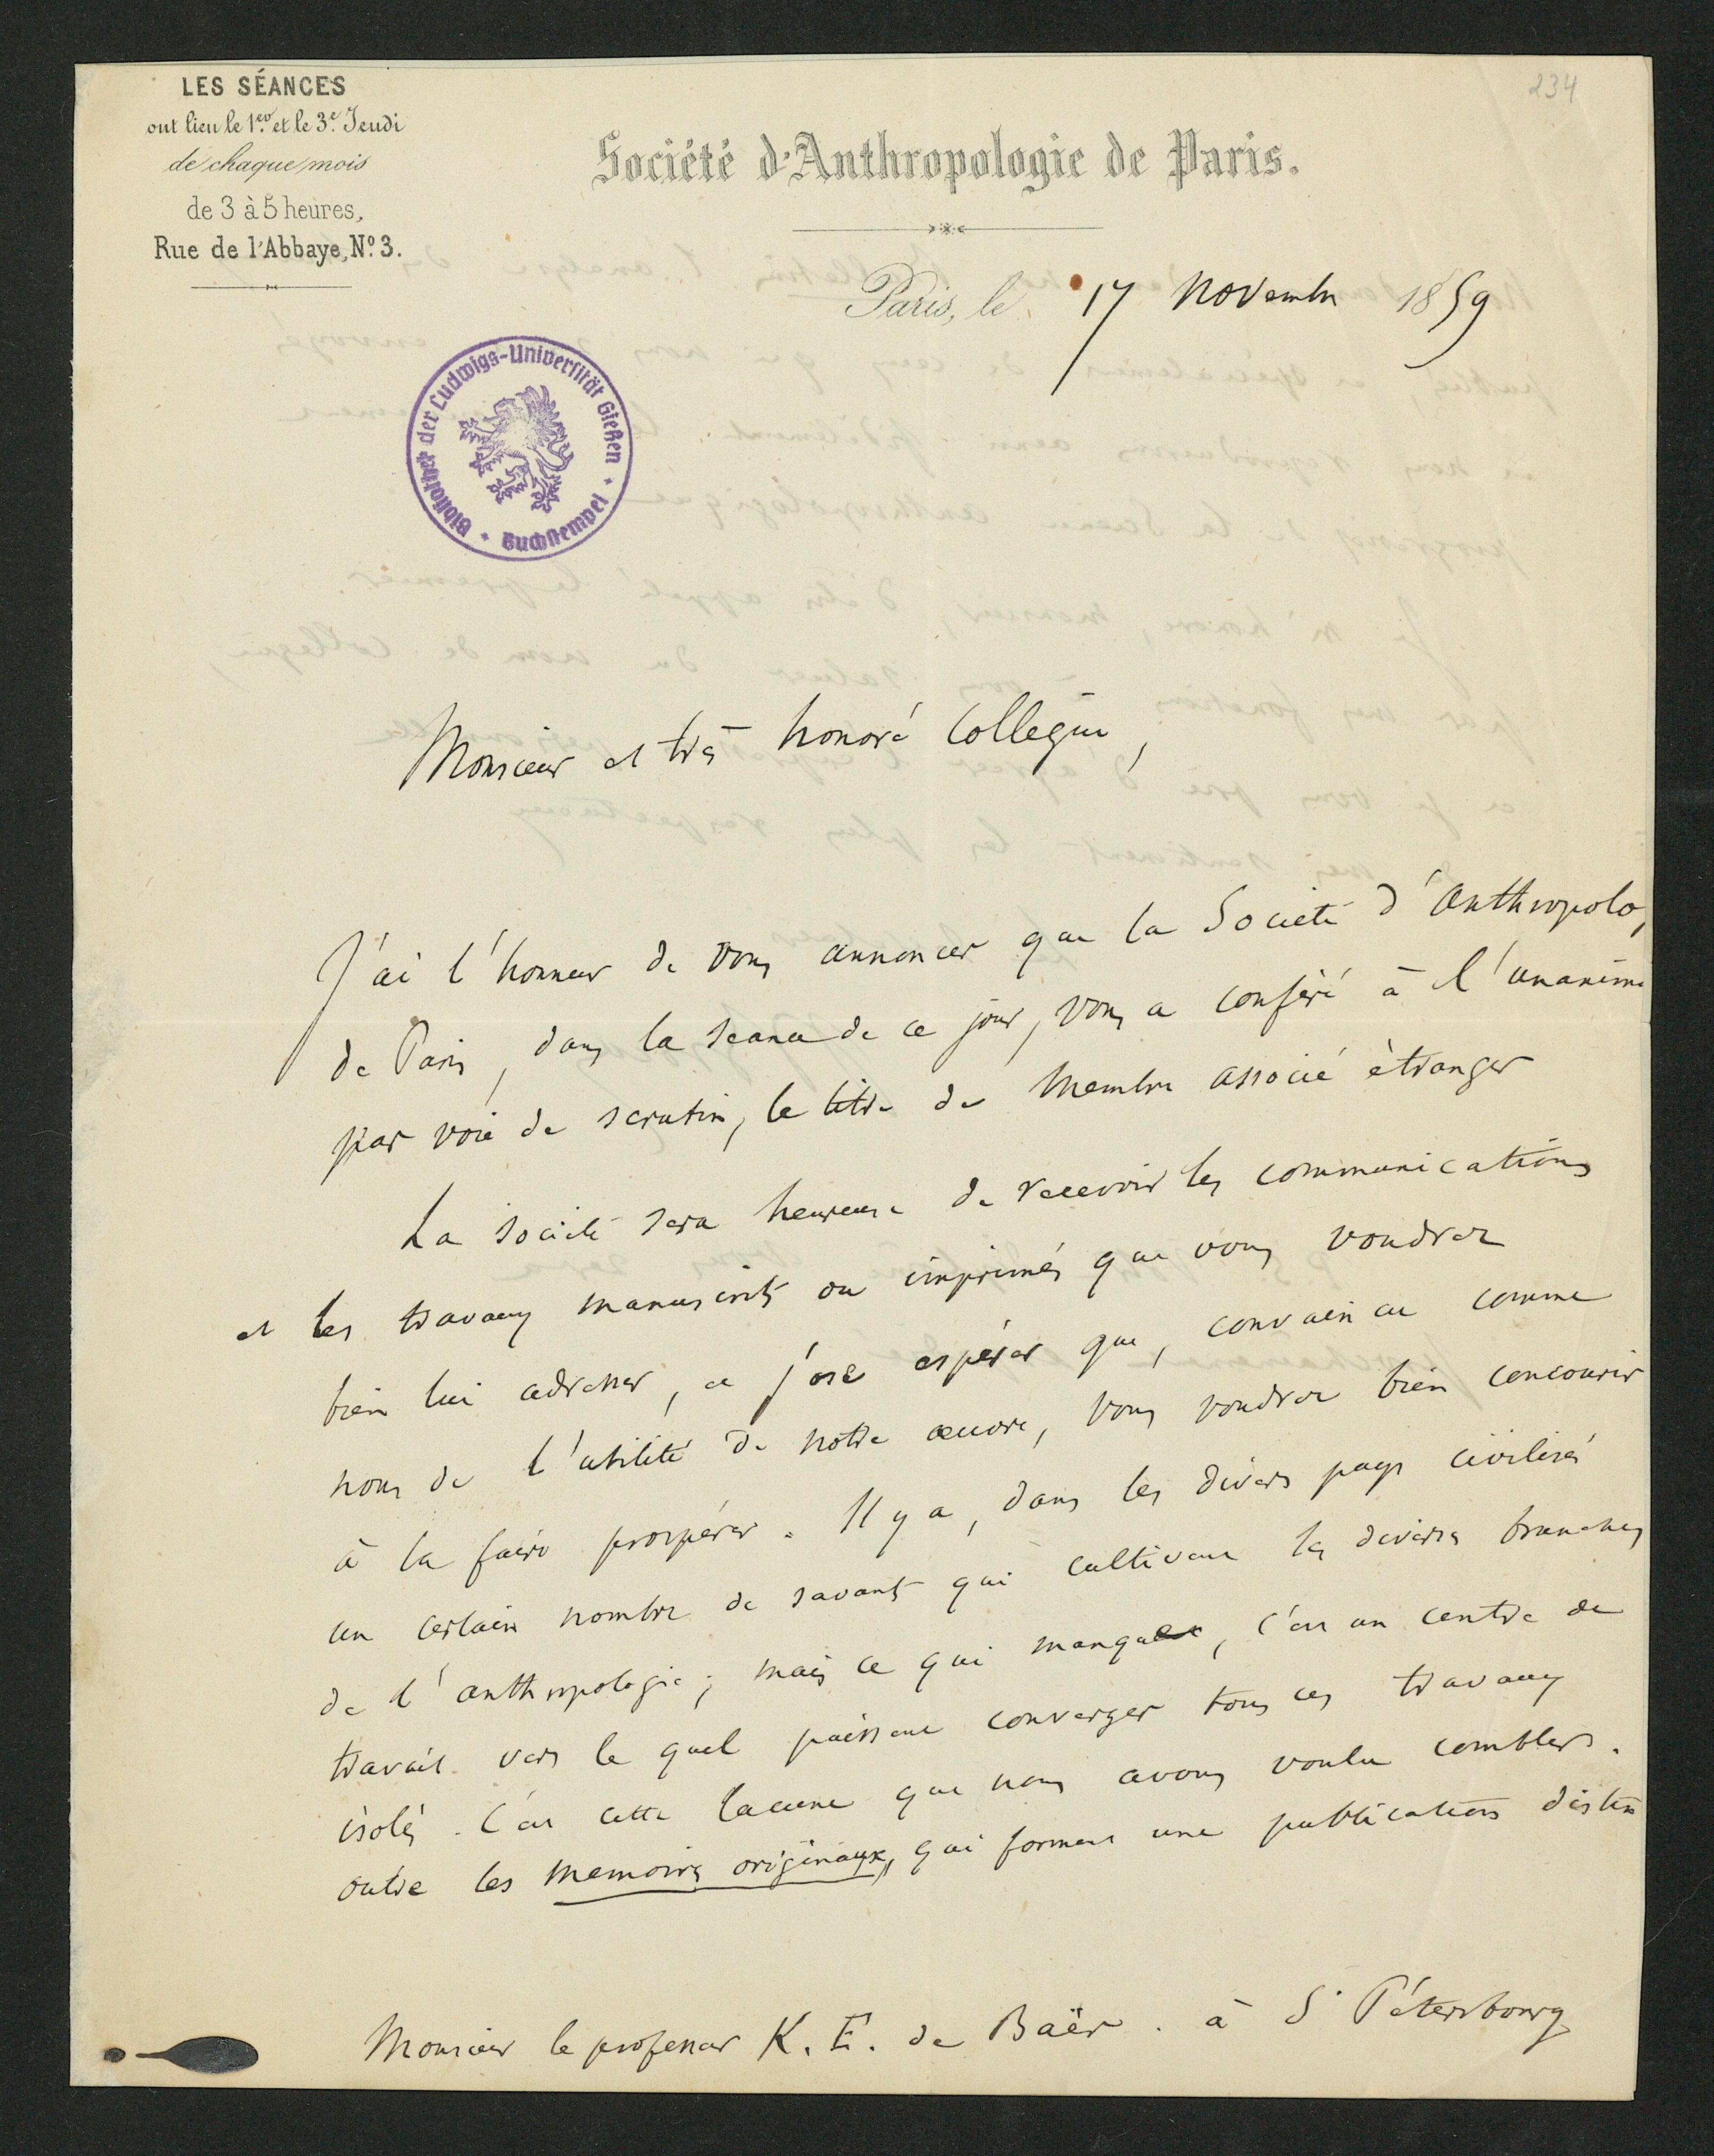 LES SÉANCES
ont lieu le 1er et le 3e Jeudi
de chaque mois
de 3 à 5 heures,
Rue de l'Abbaye, Nº 3.
234
Société d'Anthropologie de Paris.
Paris, le 17 novembre 1859
Bibliothek der Ludwigs-Universität Gießen * Buchstempel *
Monsieur et très honoré Collègue,
J'ai l'honneur de vous annoncer que la Société d'anthropolo
de Paris, dans la séance de ce jour, vous a conféré à l'unanimi
par voie de scrutin, le titre de Membre associé étranger
La société sera heureuse de recevoir les communications
et les travaux manuscrits ou imprimés que vous voudrez
bien lui adresser, et j'ose espérer que, convaincu comme
nous de l'utilité de notre œuvre, vous voudrez bien concourir
à la faire prospérer. Il y a, dans les divers pays civilisés
un certain nombre de savants qui cultivent les diverses branches
de l'anthropologie; mais ce qui manque, c'est un centre de
travail vers le quel puissent converger tous ces travaux
isolés. C'est cette lacune que nous avons voulu combler.
outre les mémoires originaux, qui forment une publication distin
Monsieur le professeur K. E. de Baër. à St Pétersbourg